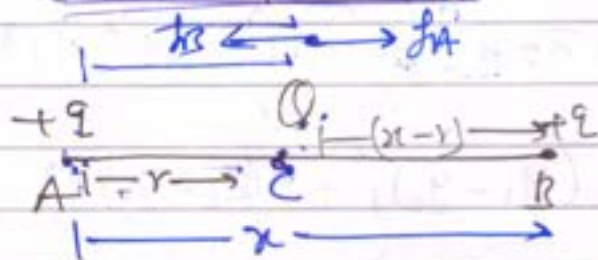 fB fA
+q Q (x-r) +q
A r C B
x